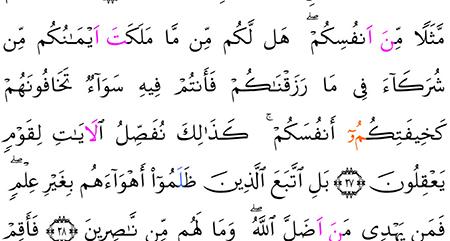 مَّثَلًا مِّنَ اَنفُسِكُمْۖ هَل لَّكُم مِّن مَّا مَلَكَتَ اَيْمَٰنُكُم مِّن
شُرَكَآءَ فِى مَا رَزَقْنَٰكُمْ فَأَنتُمْ فِيهِ سَوَآءٌ تَخَافُونَهُمْ
كَخِيفَتِكُمُۥٓ أَنفُسَكُمْۚ كَذَٰلِكَ نُفَصِّلُ اُلَايَٰتِ لِقَوْمٍ
يَعْقِلُونَ ۝٢٧ بَلِ اِتَّبَعَ اَلَّذِينَ ظَلَمُوٓاْ أَهْوَآءَهُم بِغَيْرِ عِلْمٍۖ
فَمَنْ يَهْدِى مَنَ اَضَلَّ اَللَّهُۖ وَمَا لَهُم مِّن نَّٰصِرِينَ ۝٢٨ فَأَقِمْ